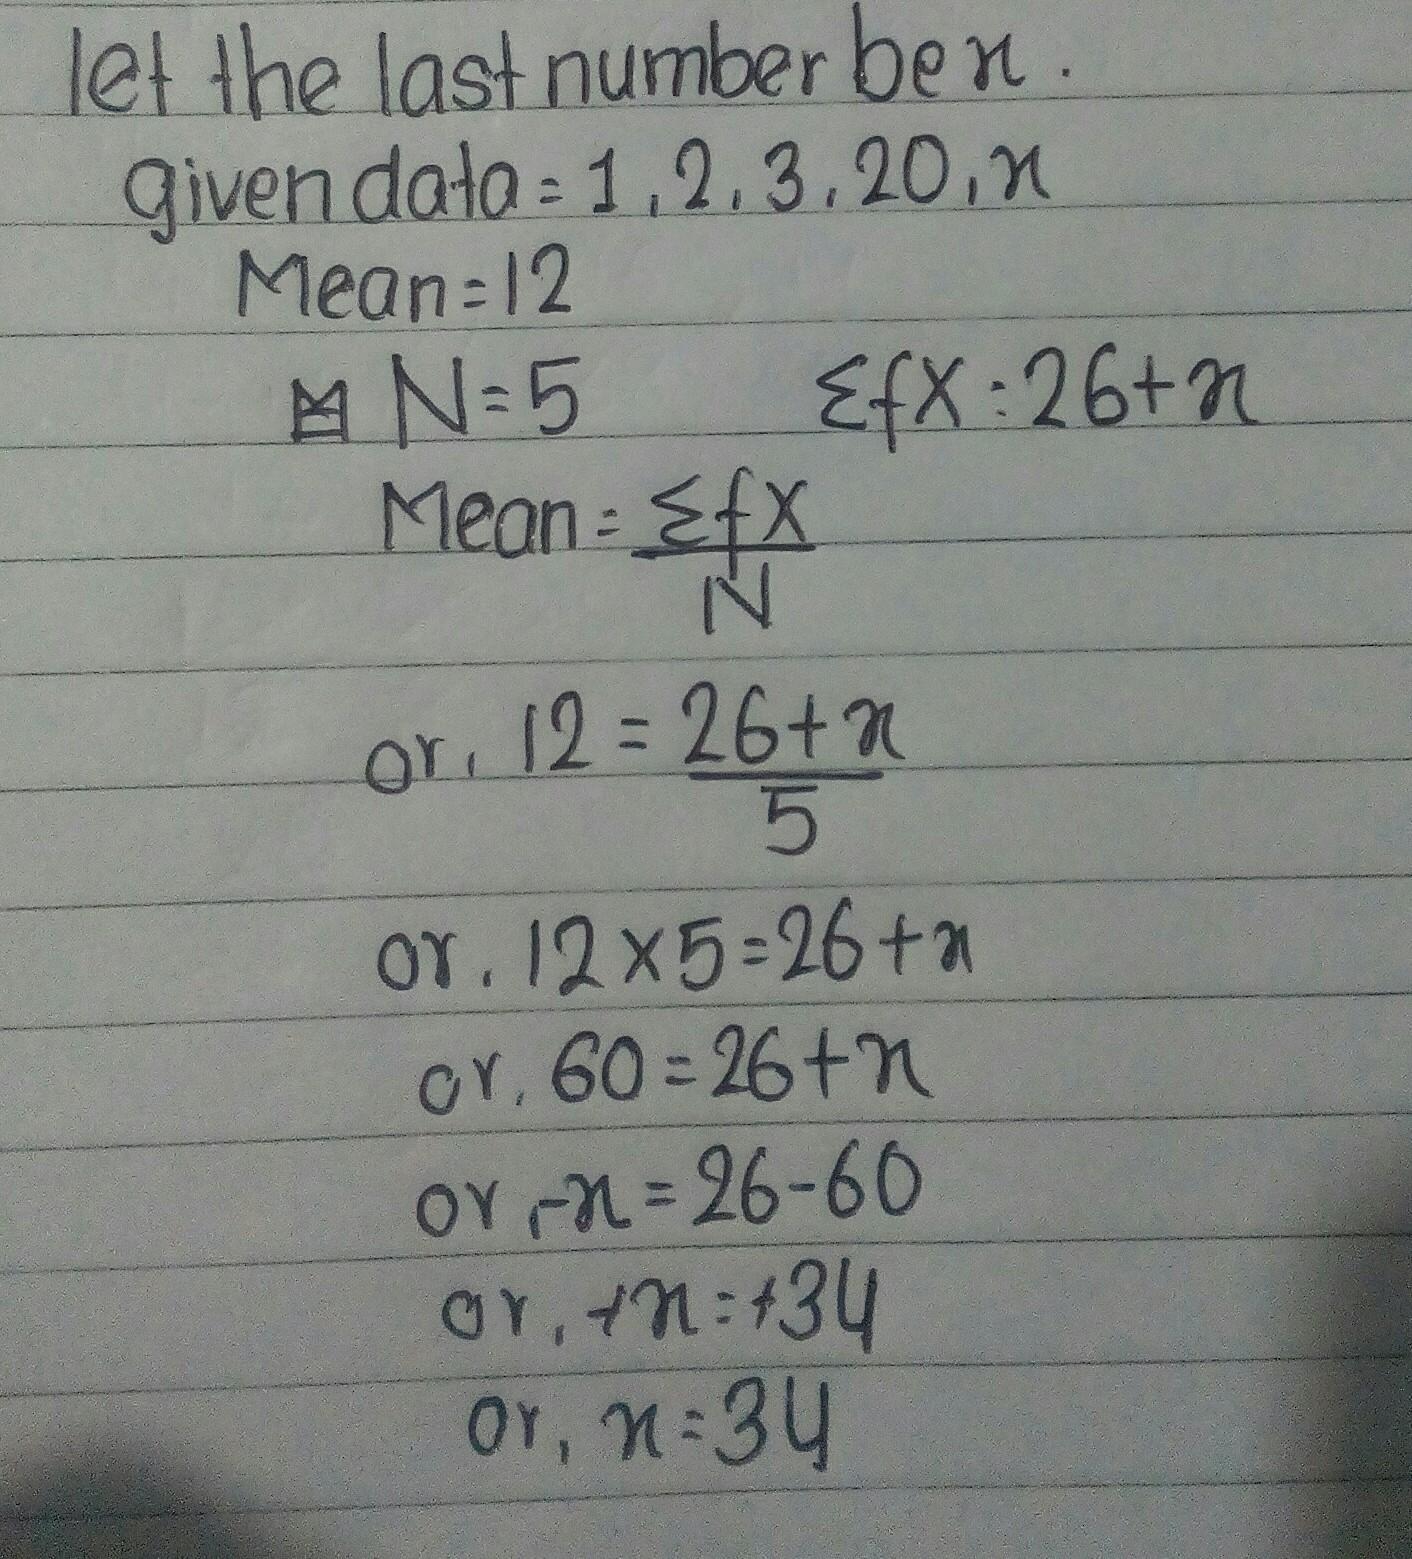 let the last number be x.
given data = 1, 2, 3, 20, x
Mean = 12
N = 5 Σfx : 26 + x
Mean = Σfx
N
or, 12 = 26 + x
5
or, 12 × 5 = 26 + x
or, 60 = 26 + x
or, -x = 26 - 60
or, +x = +34
or, x = 34